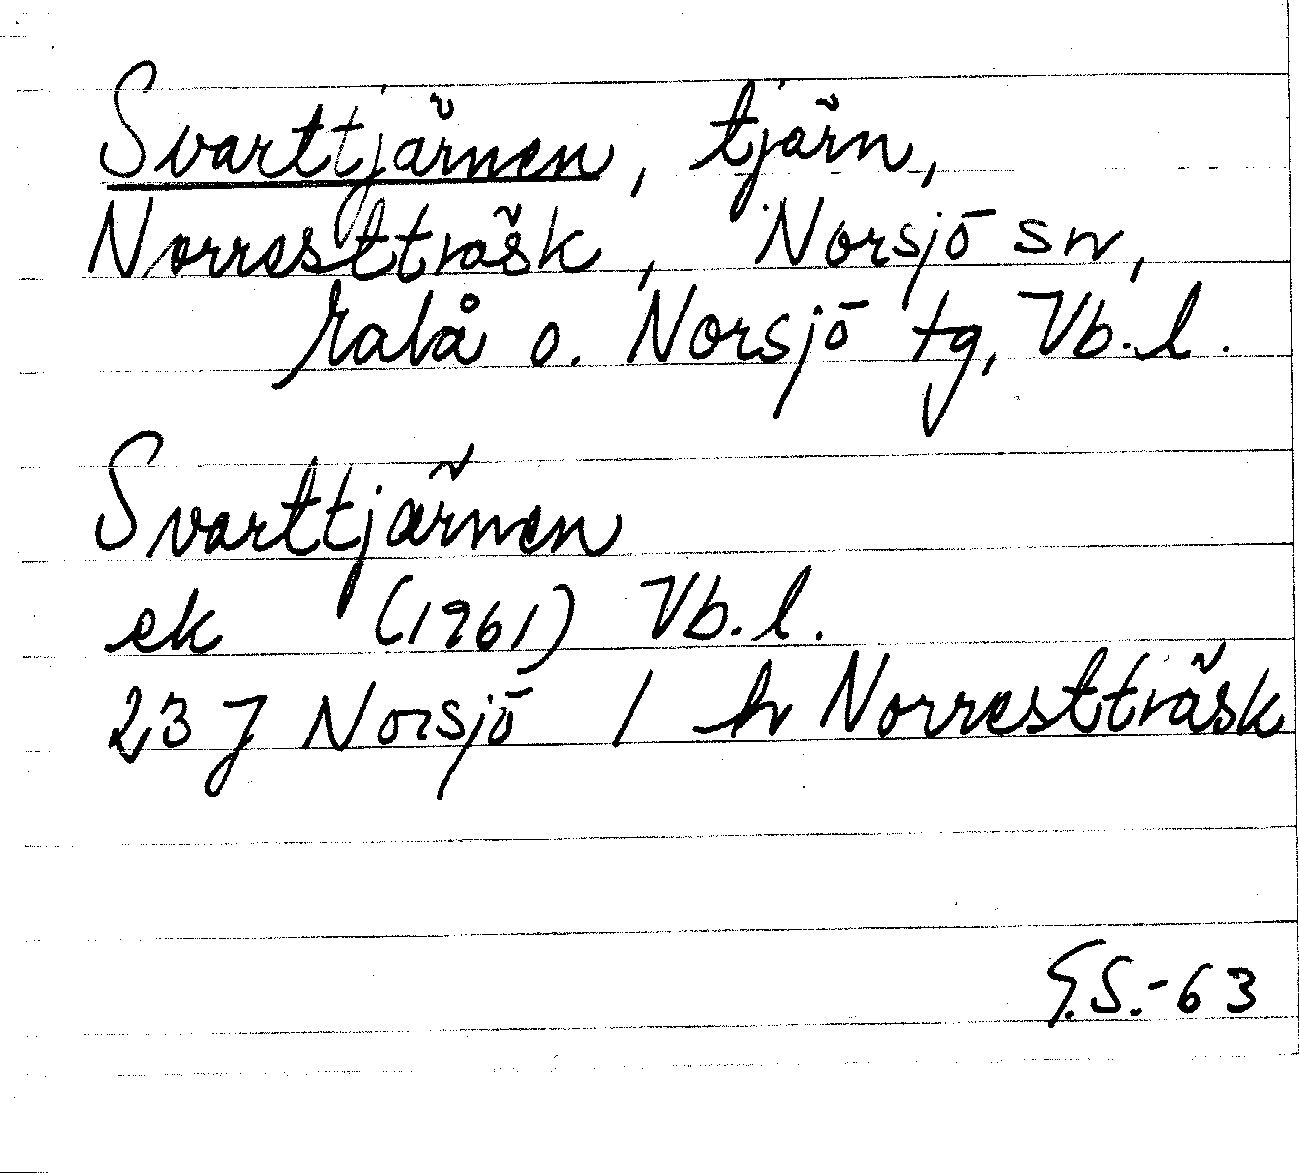 Svarttjärnen, tjärn,
Norresttväsk, Norsjö sn,
Malå o. Norsjö tg, Vb.l.
Svarttjärnen
ek (1961) Vb.l.
23 J Norsjö 1 h Norrestträsk
G.S.-63